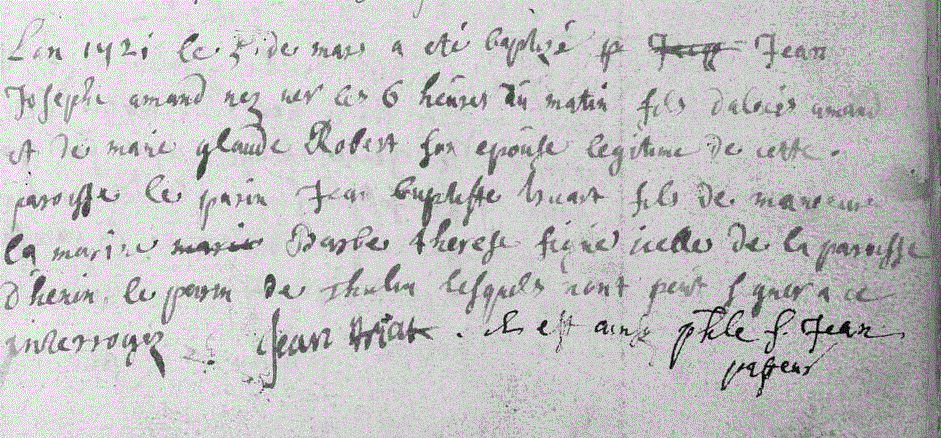 L'an 1721 le de mars a eté baptizé Jean
Josephe amand nez les 6 heures du matin fils amand
et de marie glaude Robert son epouse legitime de cette
paroisse le parin Jean baptiste huart fils de
la marine marie Barbe therese icelle de la paroisse
d'henin le parin de thulin lesquels nont peut signer a ce
interrogez Jean huart . il est ainsy Jean
pasteur